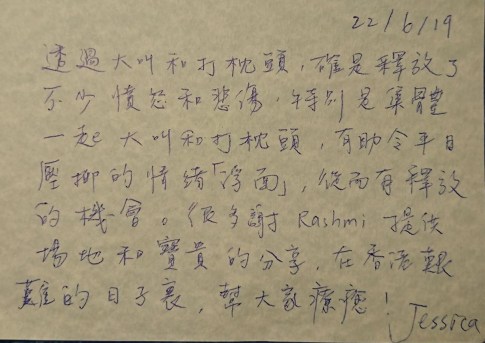 22/6/19
透過大叫和打枕頭，確是釋放了
不少憤怒和悲傷，特別是集體
一起大叫和打枕頭，有助令平日
壓抑的情緒「浮面」，從而有釋放
的機會。很多謝 Rashmi 提供
場地和寶貴的分享，在香港艱
難的日子裏，幫大家療癒！
Jessica